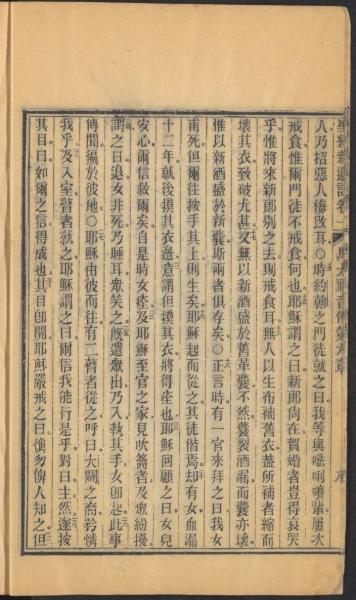 人乃招惡人悔改耳○時約翰之門徒就之曰我等與𠵽唎㘔輩屢次
戒食惟爾門徒不戒食何也耶穌謂之曰新郎尚在賀婚者豈得哀哭
乎惟將來新郎別之去則戒食耳無人以生布補舊衣蓋所補者縮而
壞其衣致破尤甚又無以新酒盛於舊革囊不然囊裂酒漏而囊亦壞
惟以新酒盛於新囊斯兩者俱存矣○正言時有一官來拜之曰我女
甫死但爾往按手其上則生矣耶穌起而從之其徒偕焉却有女血漏
十二年就後摸其衣邊意謂但摸其衣將得痊也耶穌回顧之曰女兒
安心爾信救爾矣自是時女痊及耶穌至官之家見吹籥者及眾紛擾
謂之曰退女非死乃睡耳眾笑之旣遣眾出乃入執其手女卽起此事
傳聞徧於彼地○耶穌由彼而往有二瞽者從之呼曰大闢之裔矜憐
我乎及入室瞽者就之耶穌謂之曰爾信我能行是乎對曰主然遂按
其目曰如爾之信得成也其目卽開耶穌嚴戒之曰愼勿俾人知之但